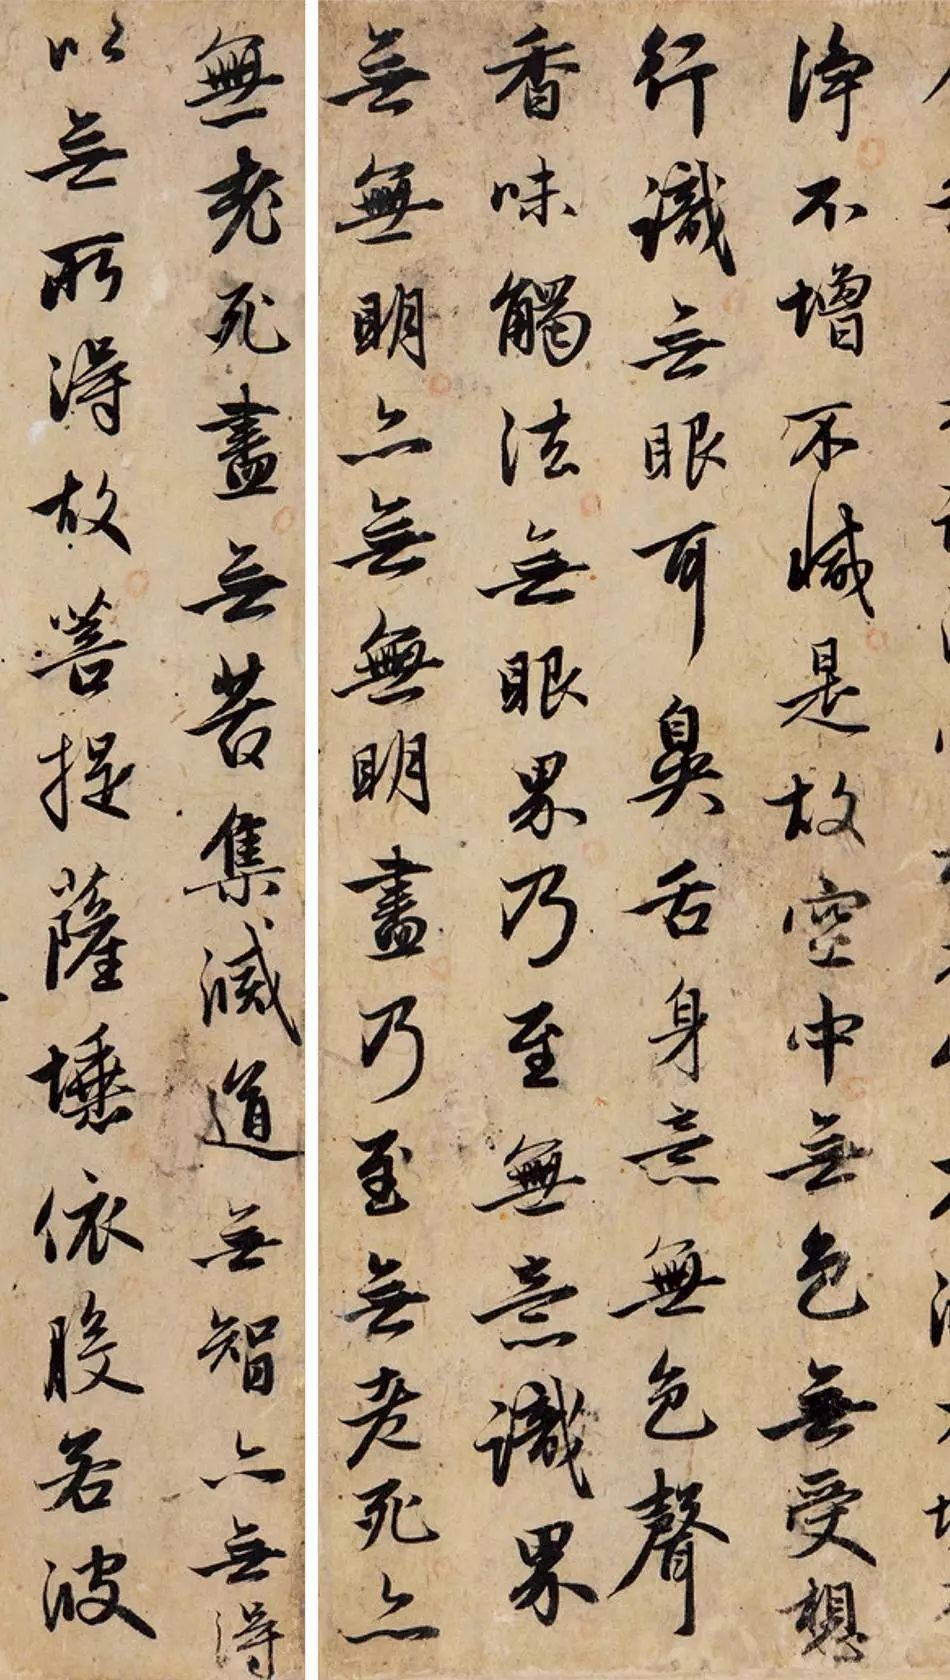 淨不增不減是故空中無色無受想
行識無眼耳鼻舌身意無色聲
香味觸法無眼界乃至無意識界
無無明亦無無明盡乃至無老死亦
無老死盡無苦集滅道無智亦無得
以無所得故菩提薩埵依般若波